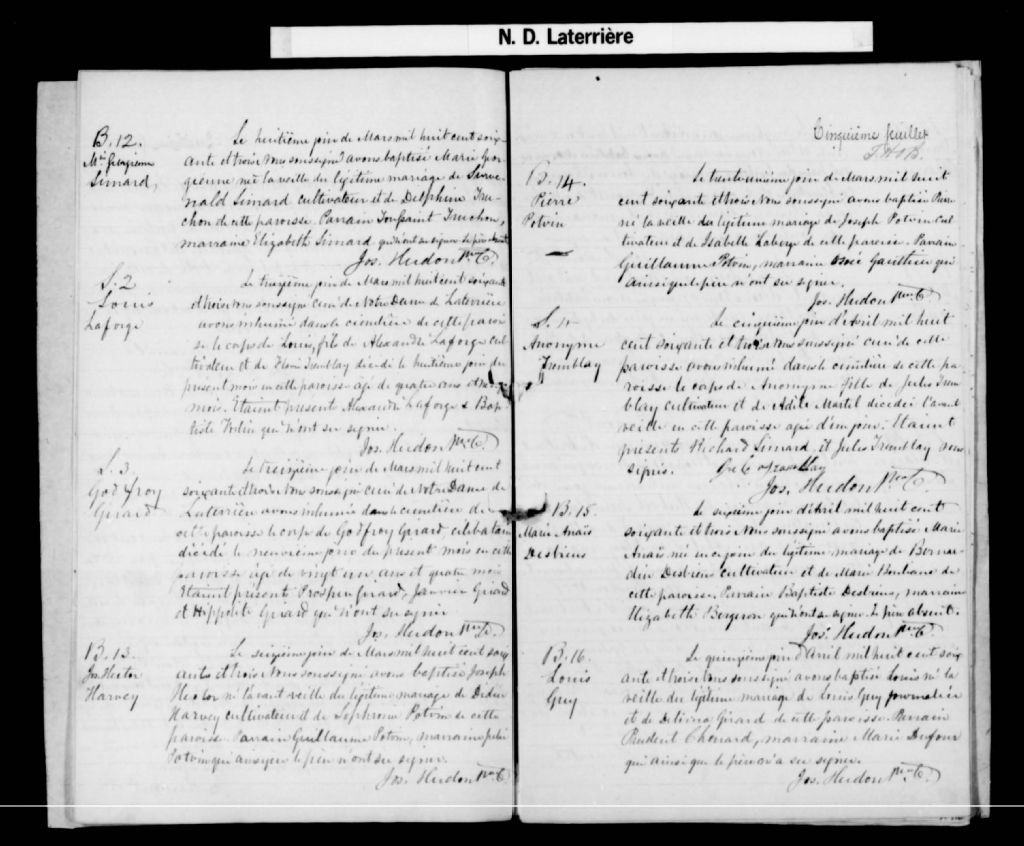 N. D. Laterrière
B. 12.
Mie Georgienne
Simard,
Le huitième jour de Mars mil huit cent soix-
ante et trois nous soussigné avons baptisé Marie Geor-
gienne née la veille du légitime mariage de
nald Simard cultivateur et de Delphine Tru-
chon de cette paroisse. Parrain Toussaint Truchon,
marraine Elizabeth Simard qui n'ont su signer le père absent
Jos. Hudon Ptre C.
S. 2
Louis
Laforge
Le treizième jour de Mars mil huit cent soixante
et trois nous soussigné curé de Notre Dame de Laterrière
avons inhumé dans le cimetière de cette parois
se le corps de Louis, fils de Alexandre Laforge cul
tivateur et de Tremblay décédé le huitième jour du
présent mois en cette paroisse agé de quatre ans et
mois. Etaient présent Alexandre Laforge & Bap-
tiste Potvin qui n'ont su signer.
Jos. Hudon Ptre C.
S. 3
Godfroy
Girard
Le treizième jour de Mars mil huit cent
soixante et trois nous soussigné curé de Notre Dame de
Laterrière avons inhumé dans le cimetière de
cette paroisse le corps de Godfroy Girard, célibataire
décédé le neuvième jour du présent mois en cette
paroisse agé de vingt un ans et quatre mois
Etaient présents Prosper Girard, Janvier Girard
et Hippolite Girard qui n'ont su signer
Jos. Hudon Ptre C.
B. 13.
Jos Hector
Harvey
Le seizième jour de Mars mil huit cent soix
ante et trois nous soussigné avons baptisé Joseph
Hector né l'avant veille du légitime mariage de Didier
Harvey cultivateur et de Sophronie Potvin de cette
paroisse Parrain Guillaume Potvin, marraine
Potvin qui le père n'ont su signer.
Jos. Hudon Ptre C.
Cinquième feuillet
B. 14.
Pierre
Potvin
Le trentunième jour de Mars mil huit
cent soixante et trois nous soussigné avons baptisé Pierre
né la veille du légitime mariage de Joseph Potvin cul
tivateur et de Isabelle Laberge de cette paroisse. Parrain
Guillaume Potvin, marraine Osée Gauthier qui
ainsi que le père n'ont su signer.
Jos. Hudon Ptre C.
S. 4
Anonyme
Tremblay
Le cinquième jour d'Avril mil huit
cent soixante et trois nous soussigné curé de cette
paroisse avons inhumé dans le cimetière de cette pa-
roisse le corps de Anonyme fille de Jules Trem
blay cultivateur et de Adèle Martel décédée l'avant
veille en cette paroisse agée d'un jour. Etaient
présents Richard Simard et Jules Tremblay sous-
signés.
Jos. Hudon Ptre C.
B. 15.
Marie Anaïs
Desbiens
Le sixième jour d'Avril mil huit cent
soixante et trois nous soussigné avons baptisé Marie
Anaïs née en ce jour du légitime mariage de Bernar-
din Desbiens cultivateur et de Marie Boulianne de
cette paroisse. Parrain Baptiste Desbiens, marraine
Elizabeth Bergeron qui n'ont su signer. Le père absent.
Jos. Hudon Ptre C.
B. 16.
Louis
Guy
Le quinzième jour d'Avril mil huit cent soix
ante et trois nous soussigné avons baptisé Louis né la
veille du légitime mariage de Louis Guy journalier
et de Delima Girard de cette paroisse. Parrain
Prudent Chenard, marraine Marie Dufour
qui ainsi que le père n'a su signer.
Jos. Hudon Ptre C.